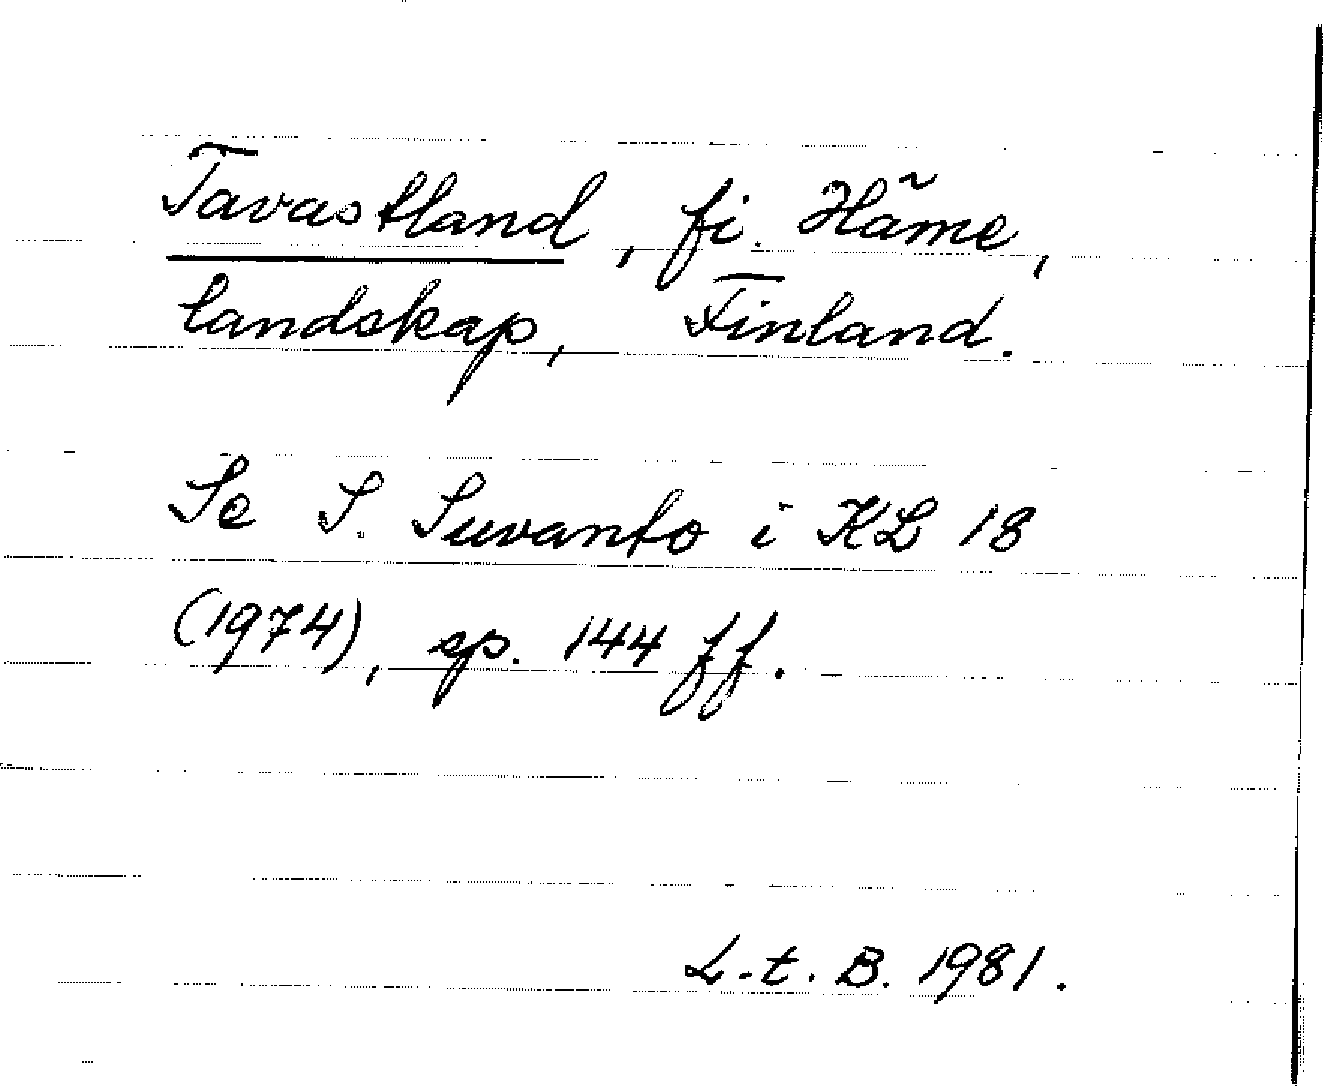 Tavastland, fi. Häme,
landskap, Finland.
Se S. Suvanto i KL 18
(1974), sp. 144 ff.
L.t.B. 1981.